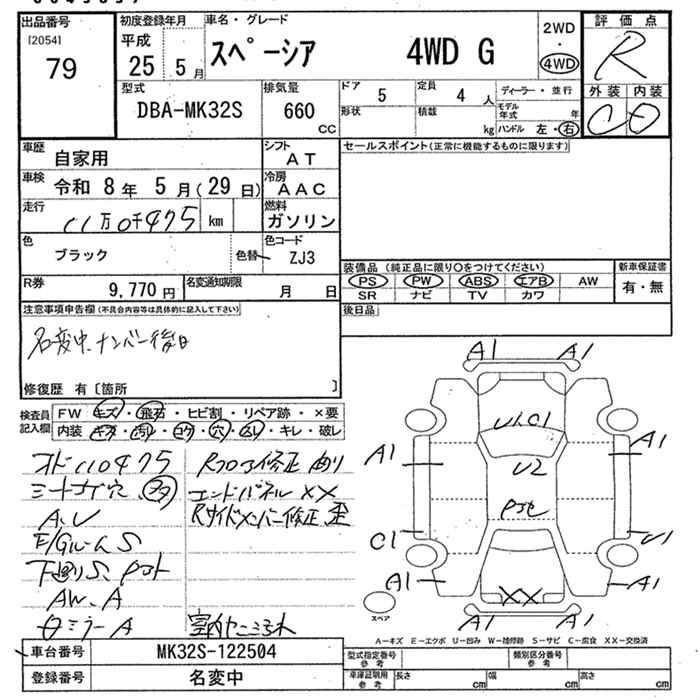 出品番号
[2054]
79
初度登録年月
平成
25 5月
車名・グレード
スペーシア 4WD G
2WD
・
4WD
評価点
R
外装 内装
C D
型式
DBA-MK32S
排気量
660
CC
ドア 5
定員 4 人
形状
積載 kg
ディーラー・並行
モデル年式 年
ハンドル 左・右
車歴
自家用
シフト
AT
車検
令和 8年 5月(29日)
冷房
AAC
走行
11万0千475 km
燃料
ガソリン
色
ブラック
色替
色コード
ZJ3
R券
9,770円
名変通知期限
月 日
セールスポイント(正常に機能するものに限ります)
装備品(純正品に限り○をつけてください)
PS PW ABS エアB AW
SR ナビ TV カワ
新車保証書
有・無
後日品
注意事項申告欄(不具合内容等は具体的に記入して下さい)
名変中、ナンバー後日
修復歴 有〔箇所 〕
検査員記入欄
FW キズ・飛石・ヒビ割・リペア跡・×要
内装 キズ・汚れ・コゲ・穴・凹レ・キレ・破レ
オド110475
A、U
S
下廻りS、
AW、A
ミラーA
Rフロア修正 曲り
エンドパネル XX
Rサイドメンバー修正 歪
A1 A1
U1 C1
A1 A1
U2
C1 U1
A1 A1
XX
A1 A1
スペア
A-キズ E-エクボ U-凹み W-補修跡 S-サビ C-腐食 XX-交換済
車台番号 MK32S-122504
登録番号 名変中
型式指定番号
参考
類別区分番号
参考
車庫証明用
参考
長さ cm
幅 cm
高さ cm